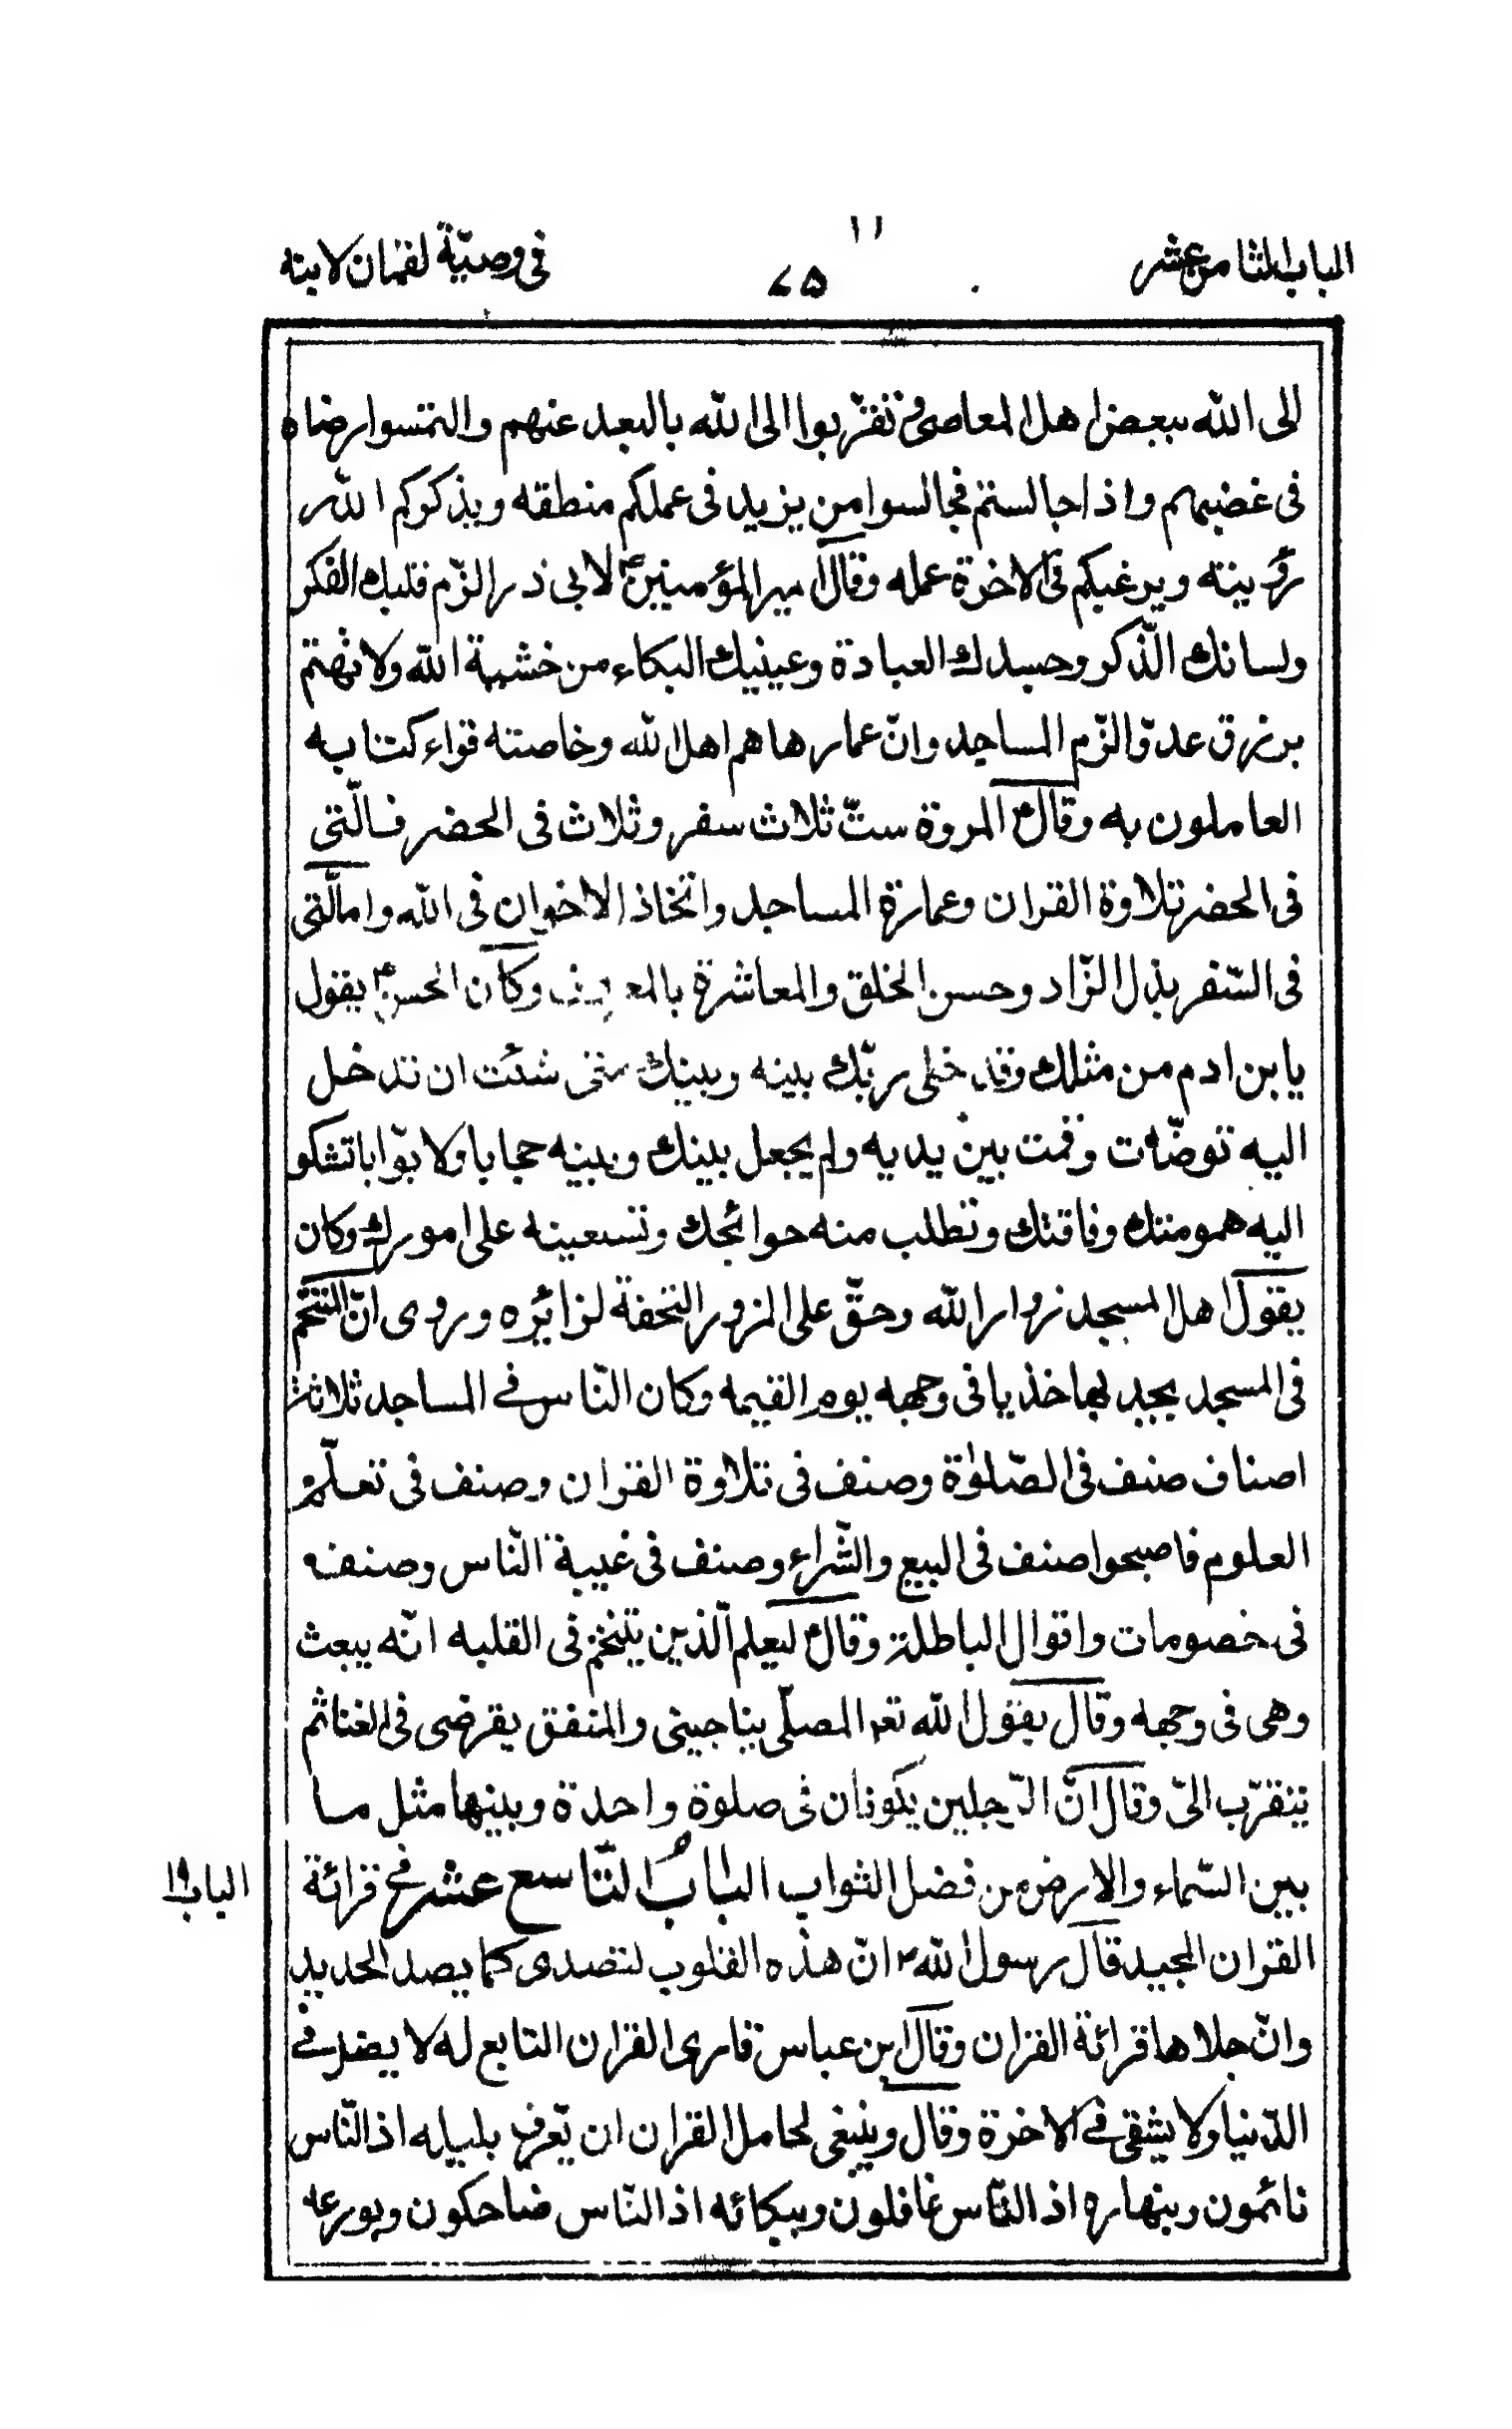 الباب الثامن عشر
١١
٧٥
فى وصيّة لقمان لابنه
الى الله ببعض اهل المعاصى وتقرّبوا الى الله بالبعد عنهم والتمسوا رضاه
فى غضبهم واذا جالستم فجالسوا من يزيد فى عملكم منطقه ويذكركم الله
رؤيته ويرغبكم فى الاخرة عمله وقال امير المؤمنين ع لابى ذر الزم قلبك الفكر
ولسانك الذّكر وجسدك العبادة وعينيك البكاء من خشية الله ولا تهتم
برزق غد والزم المساجد وانّ عمارها هم اهل الله وخاصته قراء كتابه
العاملون به وقال ع المروة ستّ ثلاث سفر وثلاث فى الحضر فالّتى
فى الحضر تلاوة القران وعمارة المساجد واتخاذ الاخوان فى الله وامالّتى
فى السّفر بذل الزّاد وحسن الخلق والمعاشرة بالمعروف وكان الحسن ع يقول
يابن ادم من مثلك وقد خلى ربّك بينه وبينك متى شئت ان تدخل
اليه توضّات وقمت بين يديه ولم يجعل بينك وبينه حجابا ولا بوّابا تشكو
اليه همومتك وفاقتك وتطلب منه حوائجك وتستعينه على امورك وكان
يقول اهل المسجد زوار الله وحقّ على المزور التحفة لزائره وروى انّ التنخم
فى المسجد يجد بها خذيا فى وجهه يوم القيمه وكان النّاس فى المساجد ثلاثة
اصناف صنف فى الصّلوٰة وصنف فى تلاوة القران وصنف فى تعلّم
العلوم فاصبحوا صنف فى البيع والشّراء وصنف فى غيبة النّاس وصنف
فى خصومات واقوال الباطلة وقال ع ليعلم الّذين يتنخم فى القلبه انّه يبعث
وهى فى وجهه وقال يقول الله تعم المصلّى يناجينى والمنفق يقرضى فى الغنائم
يتقرّب الىّ وقال انّ الرّجلين يكونان فى صلوة واحدة وبينهما مثل ما
بين السّماء والارض من فضل الثواب الباب التّاسع عشر فى قرائة
الباب ١٩
القران المجيد قال رسول الله ص انّ هذه القلوب لتصدى كما يصد الحديد
وانّ جلاها قرائة القران وقال ابن عباس قارى القران التابع له لا يضل فى
الدّنيا ولا يشقى فى الاخرة وقال وينبغى لحامل القران ان يعرف بليله اذ النّاس
نائمون وبنهاره اذ النّاس غافلون وببكائه اذ النّاس ضاحكون وبورعه